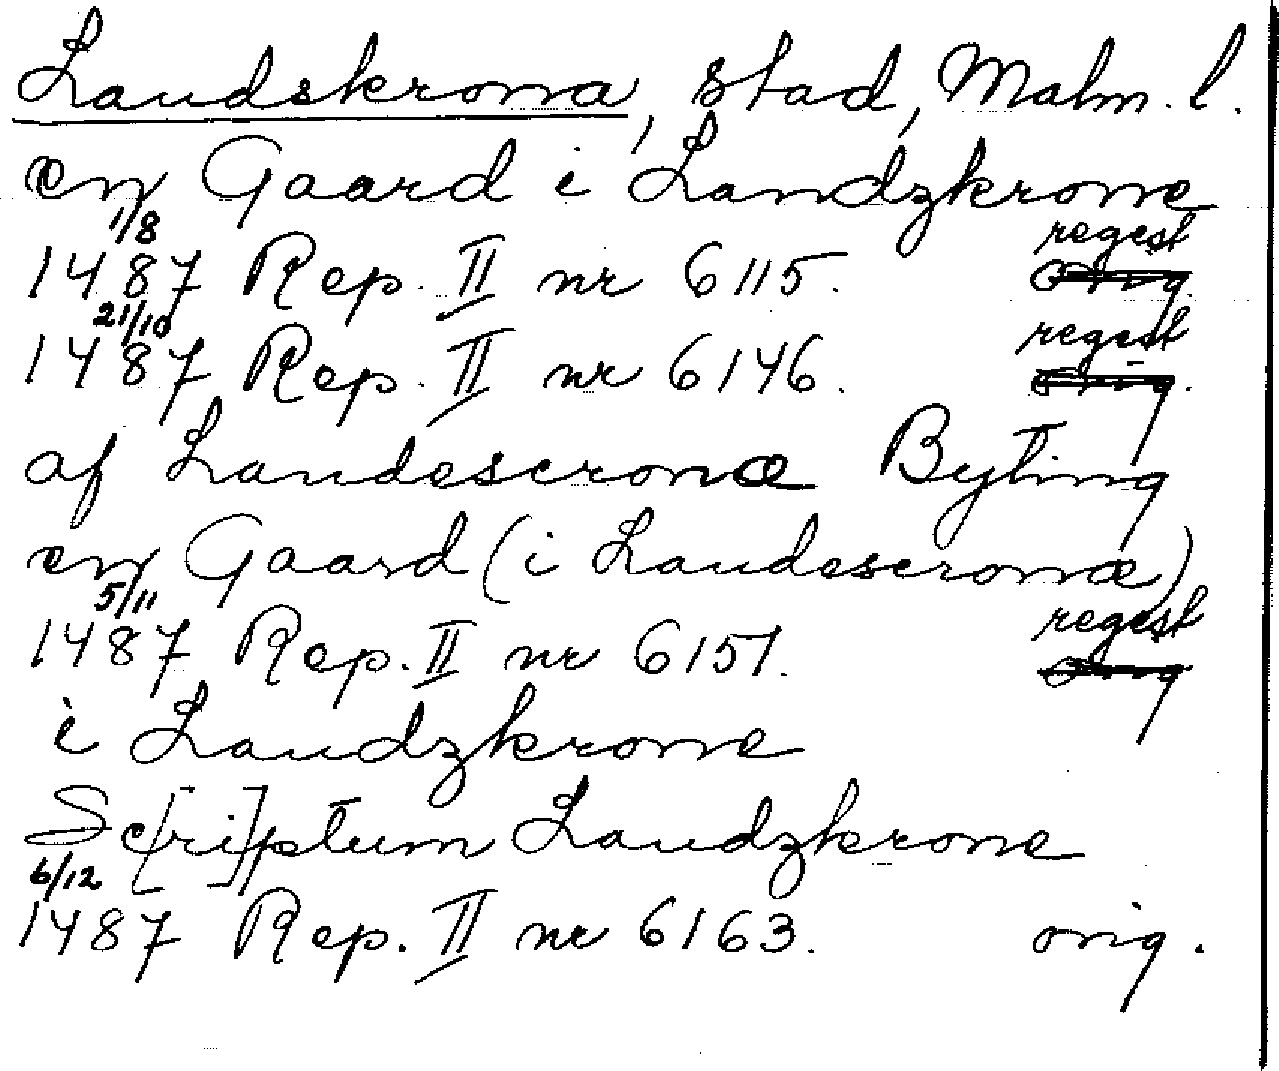 Landskrona, stad, Malm. l.
en Gaard i Landzkrone
1/8 regest
1487 Rep. II nr 6115. orig.
21/10 regest
1487 Rep. II nr 6146. orig.
af Landescronæ Byting
en Gaard (i Landescronæ)
5/11 regest
1487 Rep. II nr 6151. orig
i Landzkrone
Sc[ri]ptum Landzkrone
6/12
1487 Rep. II nr 6163. orig.